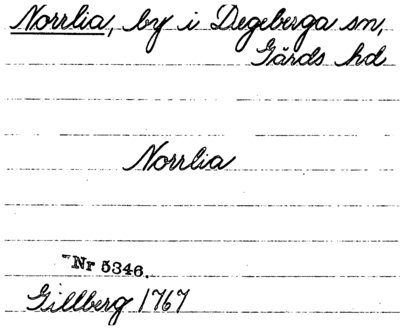 Norrlia, by i Degeberga sn,
Gärds hd
Norrlia
Nr 5346.
Gillberg 1767